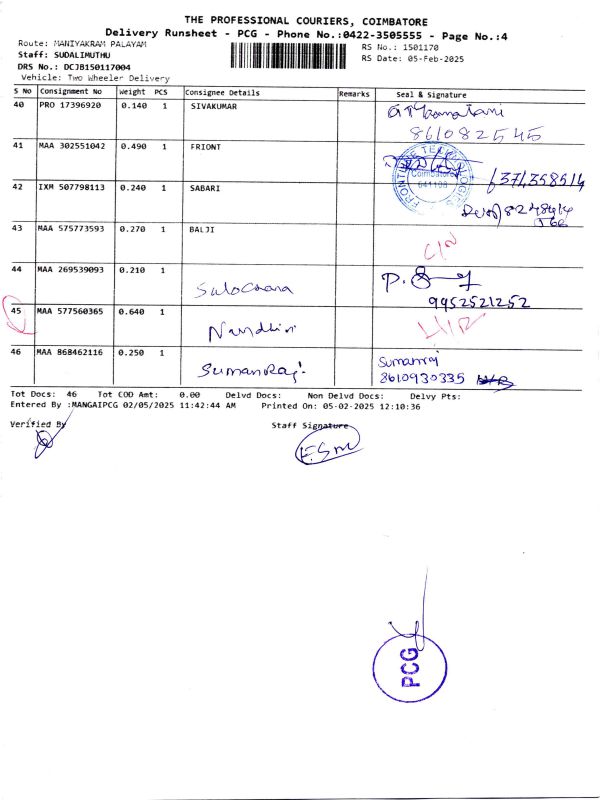 THE PROFESSIONAL COURIERS, COIMBATORE
Delivery Runsheet - PCG - Phone No.:0422-3505555 - Page No.:4
Route: MANIYAKRAM PALAYAM
RS No.: 1501170
Staff: SUDALIMUTHU
RS Date: 05-Feb-2025
DRS No.: DCJB150117004
Vehicle: Two Wheeler Delivery
S No Consignment No Weight PCS Consignee Details Remarks Seal & Signature
40 PRO 17396920 0.140 1 SIVAKUMAR
861082545
41 MAA 302551042 0.490 1 FRIONT
Coimbatore
641108
6374358514
42 IXM 507798113 0.240 1 SABARI
43 MAA 575773593 0.270 1 BALJI
C/N
44 MAA 269539093 0.210 1 Sulochana
9952521252
45 MAA 577560365 0.640 1 Nandhini
46 MAA 868462116 0.250 1 Sumanraj Sumanraj
8610930335
Tot Docs: 46 Tot COD Amt: 0.00 Delvd Docs: Non Delvd Docs: Delvy Pts:
Entered By :MANGAIPCG 02/05/2025 11:42:44 AM Printed On: 05-02-2025 12:10:36
Verified By Staff Signature
PCG